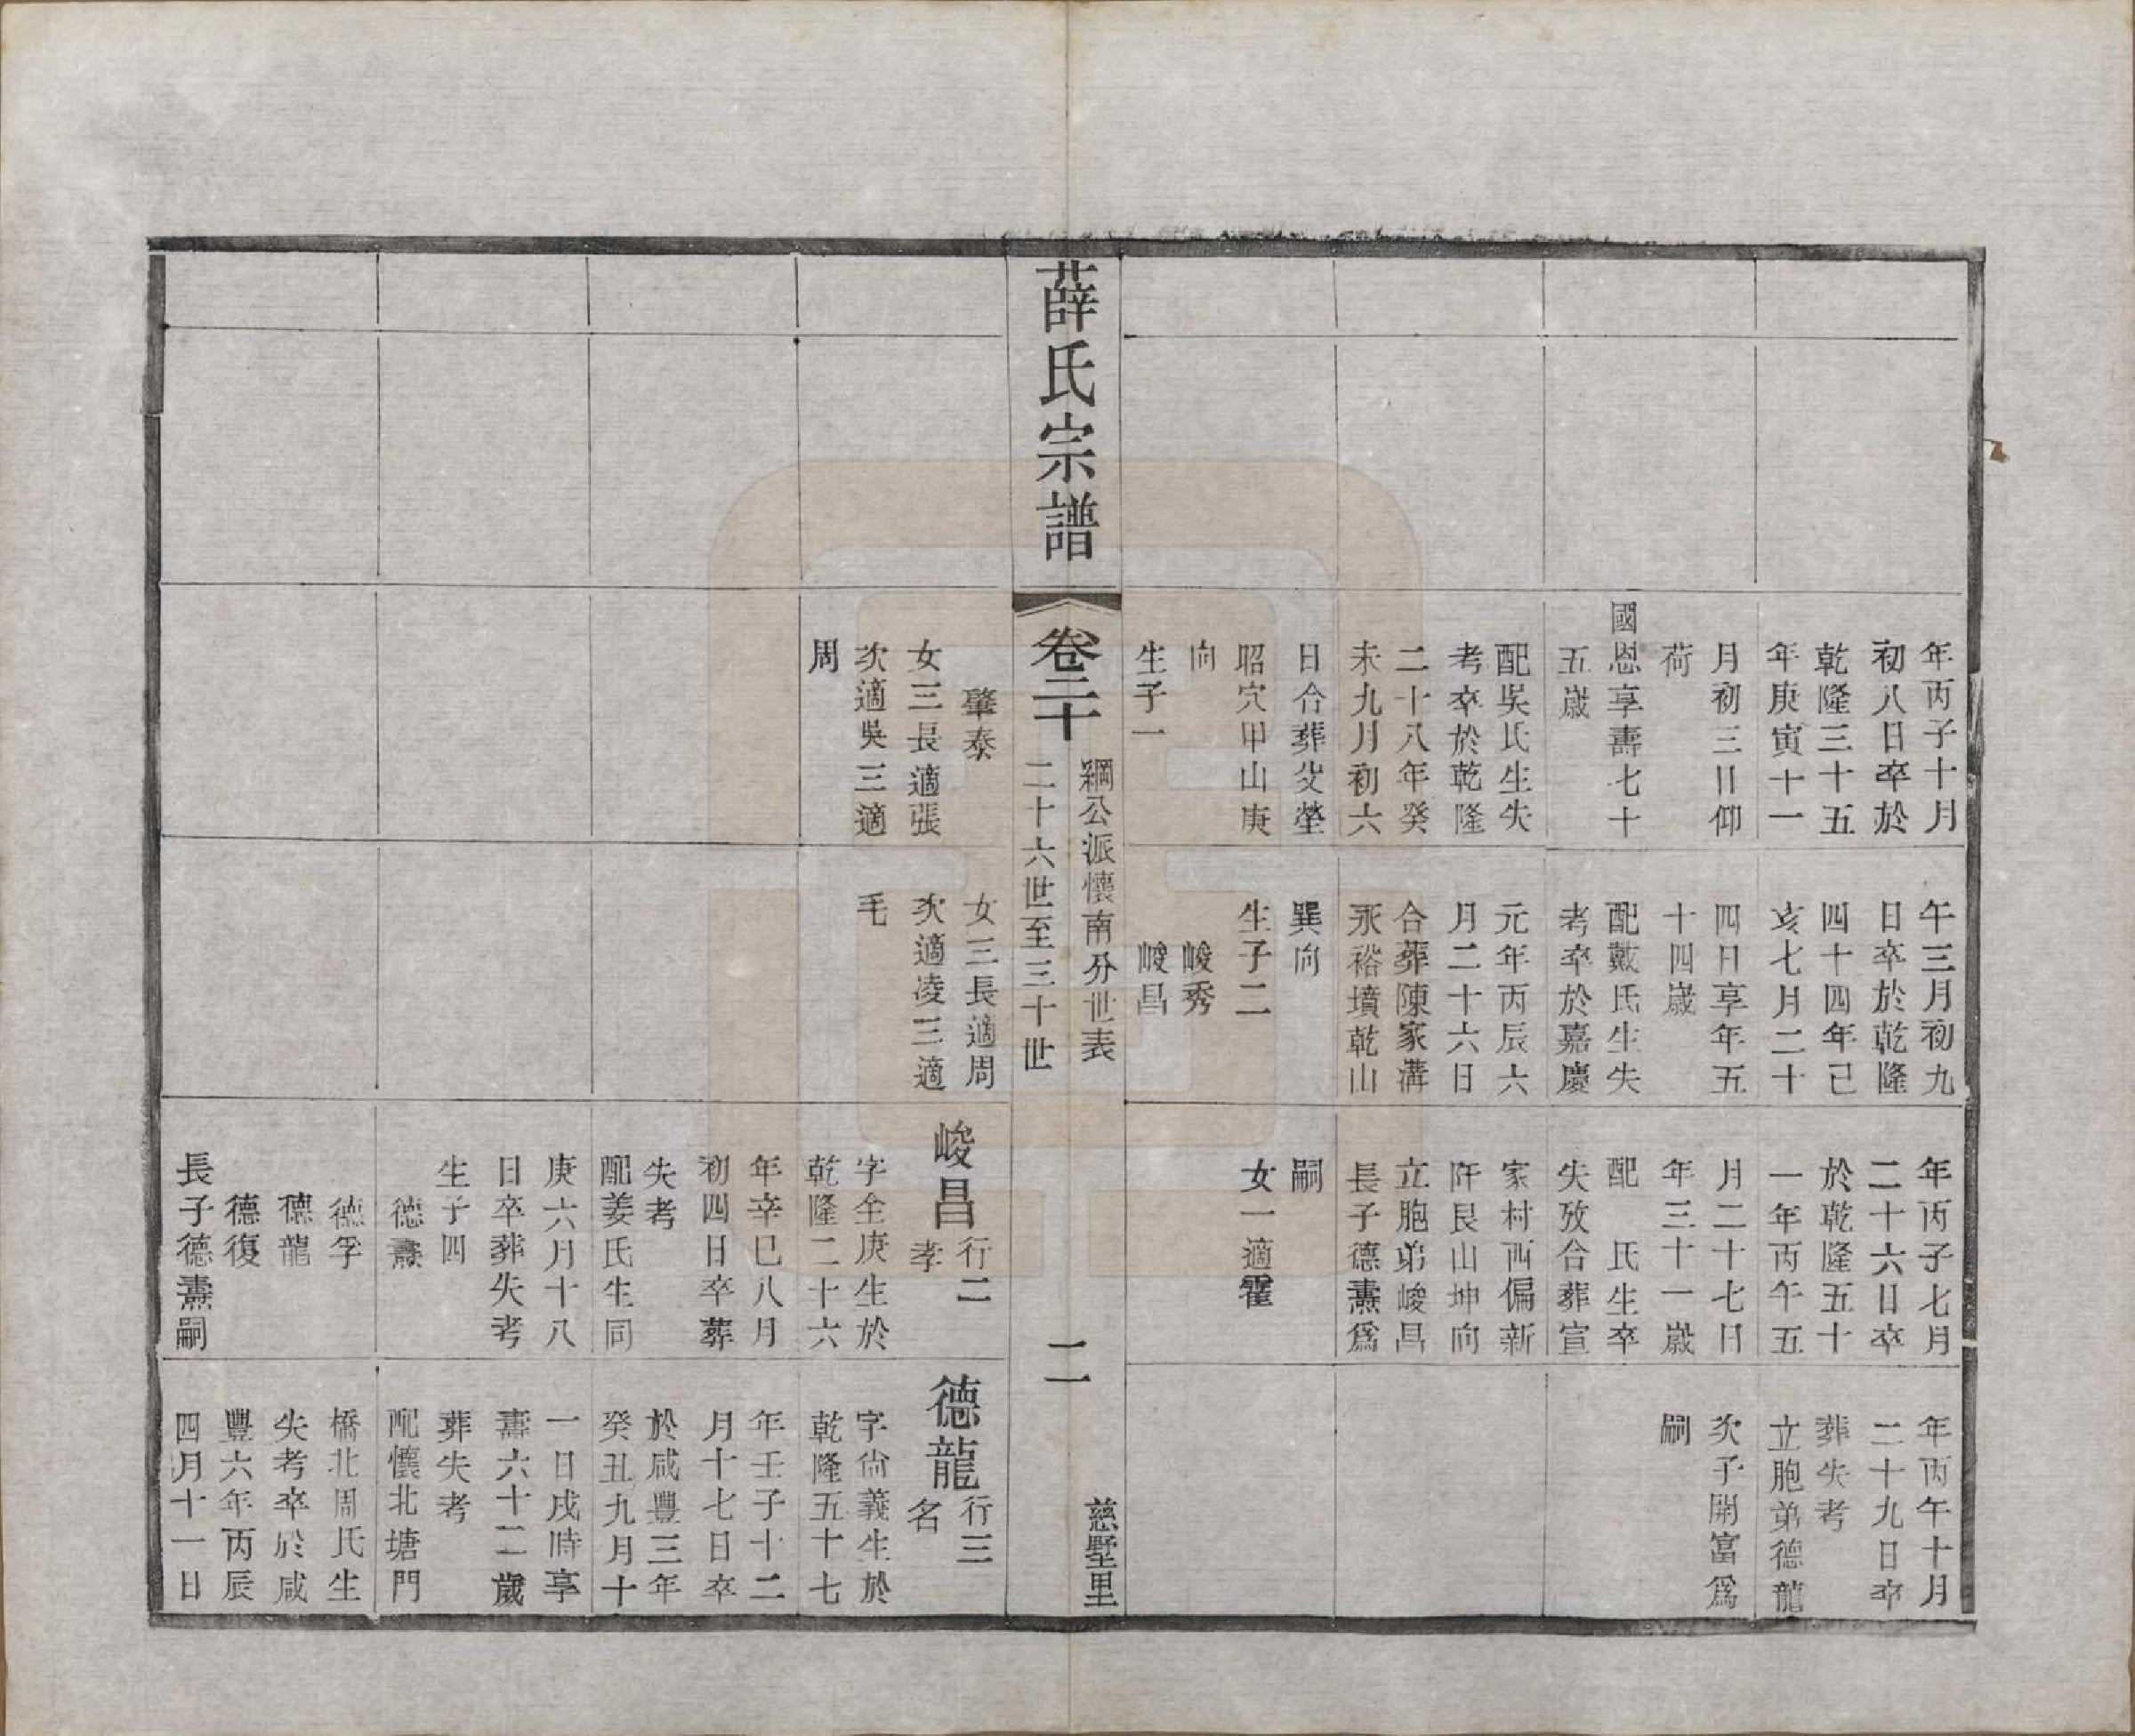 年丙子十月
初八日卒於
乾隆三十五
年庚寅十一
月初三日仰
荷
國恩享壽七十
五歲
配吳氏生失
考卒於乾隆
二十八年癸
未九月初六
日合葬父塋
昭穴甲山庚
向
生子一
午三月初九
日卒於乾隆
四十四年己
亥七月二十
四日享年五
十四歲
配戴氏生失
考卒於嘉慶
元年丙辰六
月二十六日
合葬陳家溝
永裕墳乾山
巽向
生子二
峻秀
峻昌
年丙子七月
二十六日卒
於乾隆五十
一年丙午五
月二十七日
年三十一歲
配　氏生卒
失攷合葬宣
家村西偏新
阡艮山坤向
立胞弟峻昌
長子德燾為
嗣
女一適霍
年丙午十月
二十九日卒
葬失考
立胞弟德龍
次子開富為
嗣
薛氏宗譜
卷二十
綱公派懷南分世表
二十六世至三十世
二
慈墅里
肇泰
女三長適張
次適吳三適
周
女三長適周
次適凌三適
毛
峻昌行二
孝
字全庚生於
乾隆二十六
年辛巳八月
初四日卒葬
失考
配姜氏生同
庚六月十八
日卒葬失考
生子四
德燾
德孚
德龍
德復
長子德燾嗣
德龍行三
名
字尙義生於
乾隆五十七
年壬子十二
月十七日卒
於咸豐三年
癸丑九月十
一日戌時享
壽六十二歲
葬失考
配懷北塘門
橋北周氏生
失考卒於咸
豐六年丙辰
四月十一日